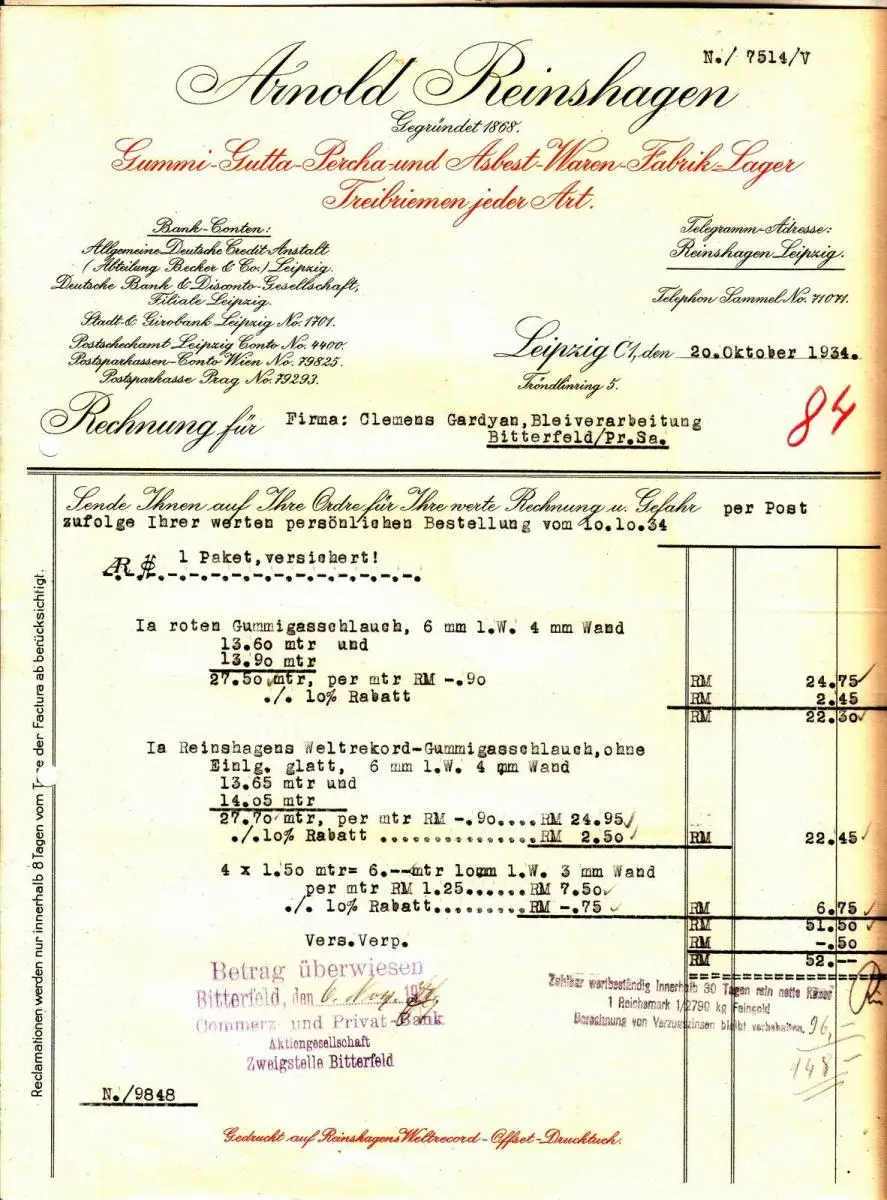 N./ 7514/V
Arnold Reinshagen
Gegründet 1868.
Gummi-Gutta-Percha-und Asbest-Waren-Fabrik-Lager
Treibriemen jeder Art.
Bank-Conten:
Allgemeine Deutsche Credit-Anstalt
(Abteilung Becker & Co.) Leipzig.
Deutsche Bank & Disconto-Gesellschaft,
Filiale Leipzig.
Stadt-& Girobank Leipzig No. 1701.
Postscheckamt Leipzig Conto No. 4400.
Postsparkassen-Conto Wien No. 79825.
Postsparkasse Prag No. 79293.
Telegramm-Adresse:
Reinshagen Leipzig.
Telephon Sammel No. 71071.
Leipzig C1, den 20.Oktober 1934.
Tröndlinring 5.
Rechnung für Firma: Clemens Gardyan,Bleiverarbeitung
Bitterfeld/Pr.Sa.
84
Sende Ihnen auf Ihre Ordre für Ihre werte Rechnung u. Gefahr per Post
zufolge Ihrer werten persönlichen Bestellung vom 10.10.34
AR 1 Paket,versichert!
Ia roten Gummigasschlauch, 6 mm l.W. 4 mm Wand
13.60 mtr und
13.90 mtr
27.50 mtr, per mtr RM -.90 RM 24.75
./. 10% Rabatt RM 2.45
RM 22.30
Ia Reinshagens Weltrekord-Gummigasschlauch,ohne
Einlg. glatt, 6 mm l.W. 4 mm Wand
13.65 mtr und
14.05 mtr
27.70 mtr, per mtr RM -.90....RM 24.95
./.10% Rabatt ...............RM 2.50 RM 22.45
4 x 1.50 mtr= 6.--mtr 10mm l.W. 3 mm Wand
per mtr RM 1.25......RM 7.50
./. 10% Rabatt.........RM -.75 RM 6.75
RM 51.50
Vers.Verp. RM -.50
RM 52.--
Betrag überwiesen
Bitterfeld, den 6. Nov. 193
Commerz- und Privat-Bank
Aktiengesellschaft
Zweigstelle Bitterfeld
Zahlbar wertbeständig innerhalb 30 Tagen rein netto Kasse
1 Reichsmark 1/2790 kg Feingold
Berechnung von Verzugszinsen bleibt vorbehalten.
96,-
148,-
N./9848
Gedruckt auf Reinshagens Weltrecord-Offset-Drucktuch.
Reclamationen werden nur innerhalb 8 Tagen vom Tage der Factura ab berücksichtigt.